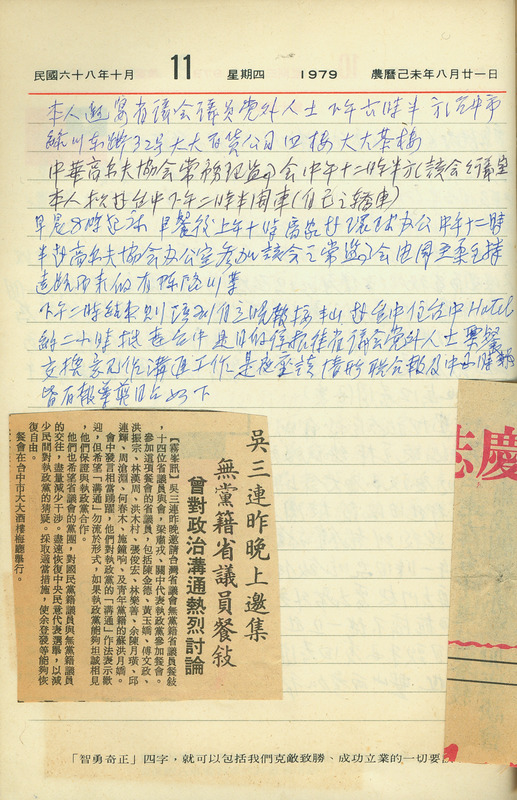 民國六十八年十月 11 星期四 1979 農曆己未年八月廿一日
本人邀宴省議會議員党外人士下午六時半於台中市
綠川東街32号大大百貨公司四楼大大茶樓
中華高尔夫協会常務理監事会中午十二時半於該会
本人於赴台中下午二時半開車(自己之轎車)
早晨8時起床 早餐後上午十時 赴環球办公中午十二時
半赴高尔夫協会办公室参加該会之常監事会由周至柔主持
遠路而來的有陳啟川等
下午二時結束則 自立晚報 赴台中住台中Hotel
約二小時抵達台中 省議会党外人士 聚餐
交換意見作溝通工作 座談情形联合報及中国時報
皆有報導剪貼如下
吳三連昨晚上邀集
無黨籍省議員餐敍
曾對政治溝通熱烈討論
【霧峯訊】吳三連昨晚邀請台灣省議會無黨籍省議員餐敍
，十四位省議員與會，梁肅戎、關中代表執政黨參加餐會。
參加這項餐會的省議員，包括陳金德、黃玉嬌、傅文政、
洪振宗、林漢周、洪木村、張俊宏、林樂善、余陳月瑛、邱
連輝、周滄淵、何春木、施鐘响、及青年黨籍的蘇洪月嬌。
會中發言相當踴躍，他們對執政黨的「溝通」作法表示歡
迎，但希望「溝通」勿流於形式，如果執政黨能夠坦誠相見
，他們保證與執政黨合作。
他們也希望省議會的黨團，對國民黨籍議員與無黨籍議員
的交往，盡量減少干涉。盡速恢復中央民意代表選舉，以減
少民間對執政黨的猜疑。採取適當措施，使余登發等能夠恢
復自由。
餐會在台中市大大酒樓梅廳舉行。
慶
誌
「智勇奇正」四字，就可以包括我們克敵致勝、成功立業的一切要